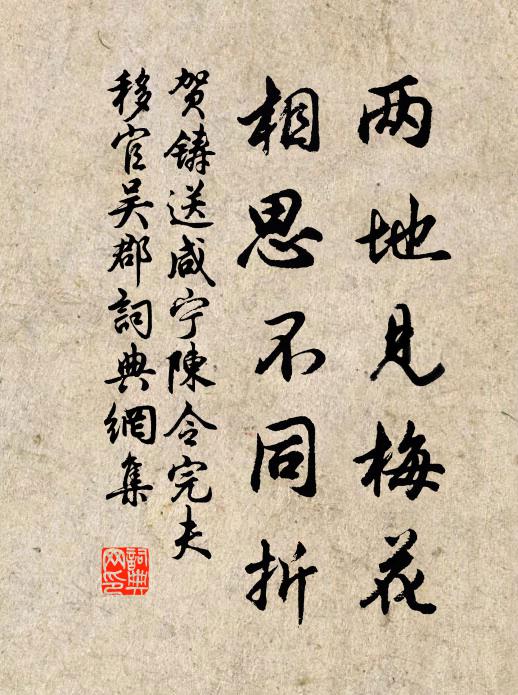 两地见梅花
相思不同折
贺铸送咸宁陳令完夫
移官吴郡詞典網集
詞典网印